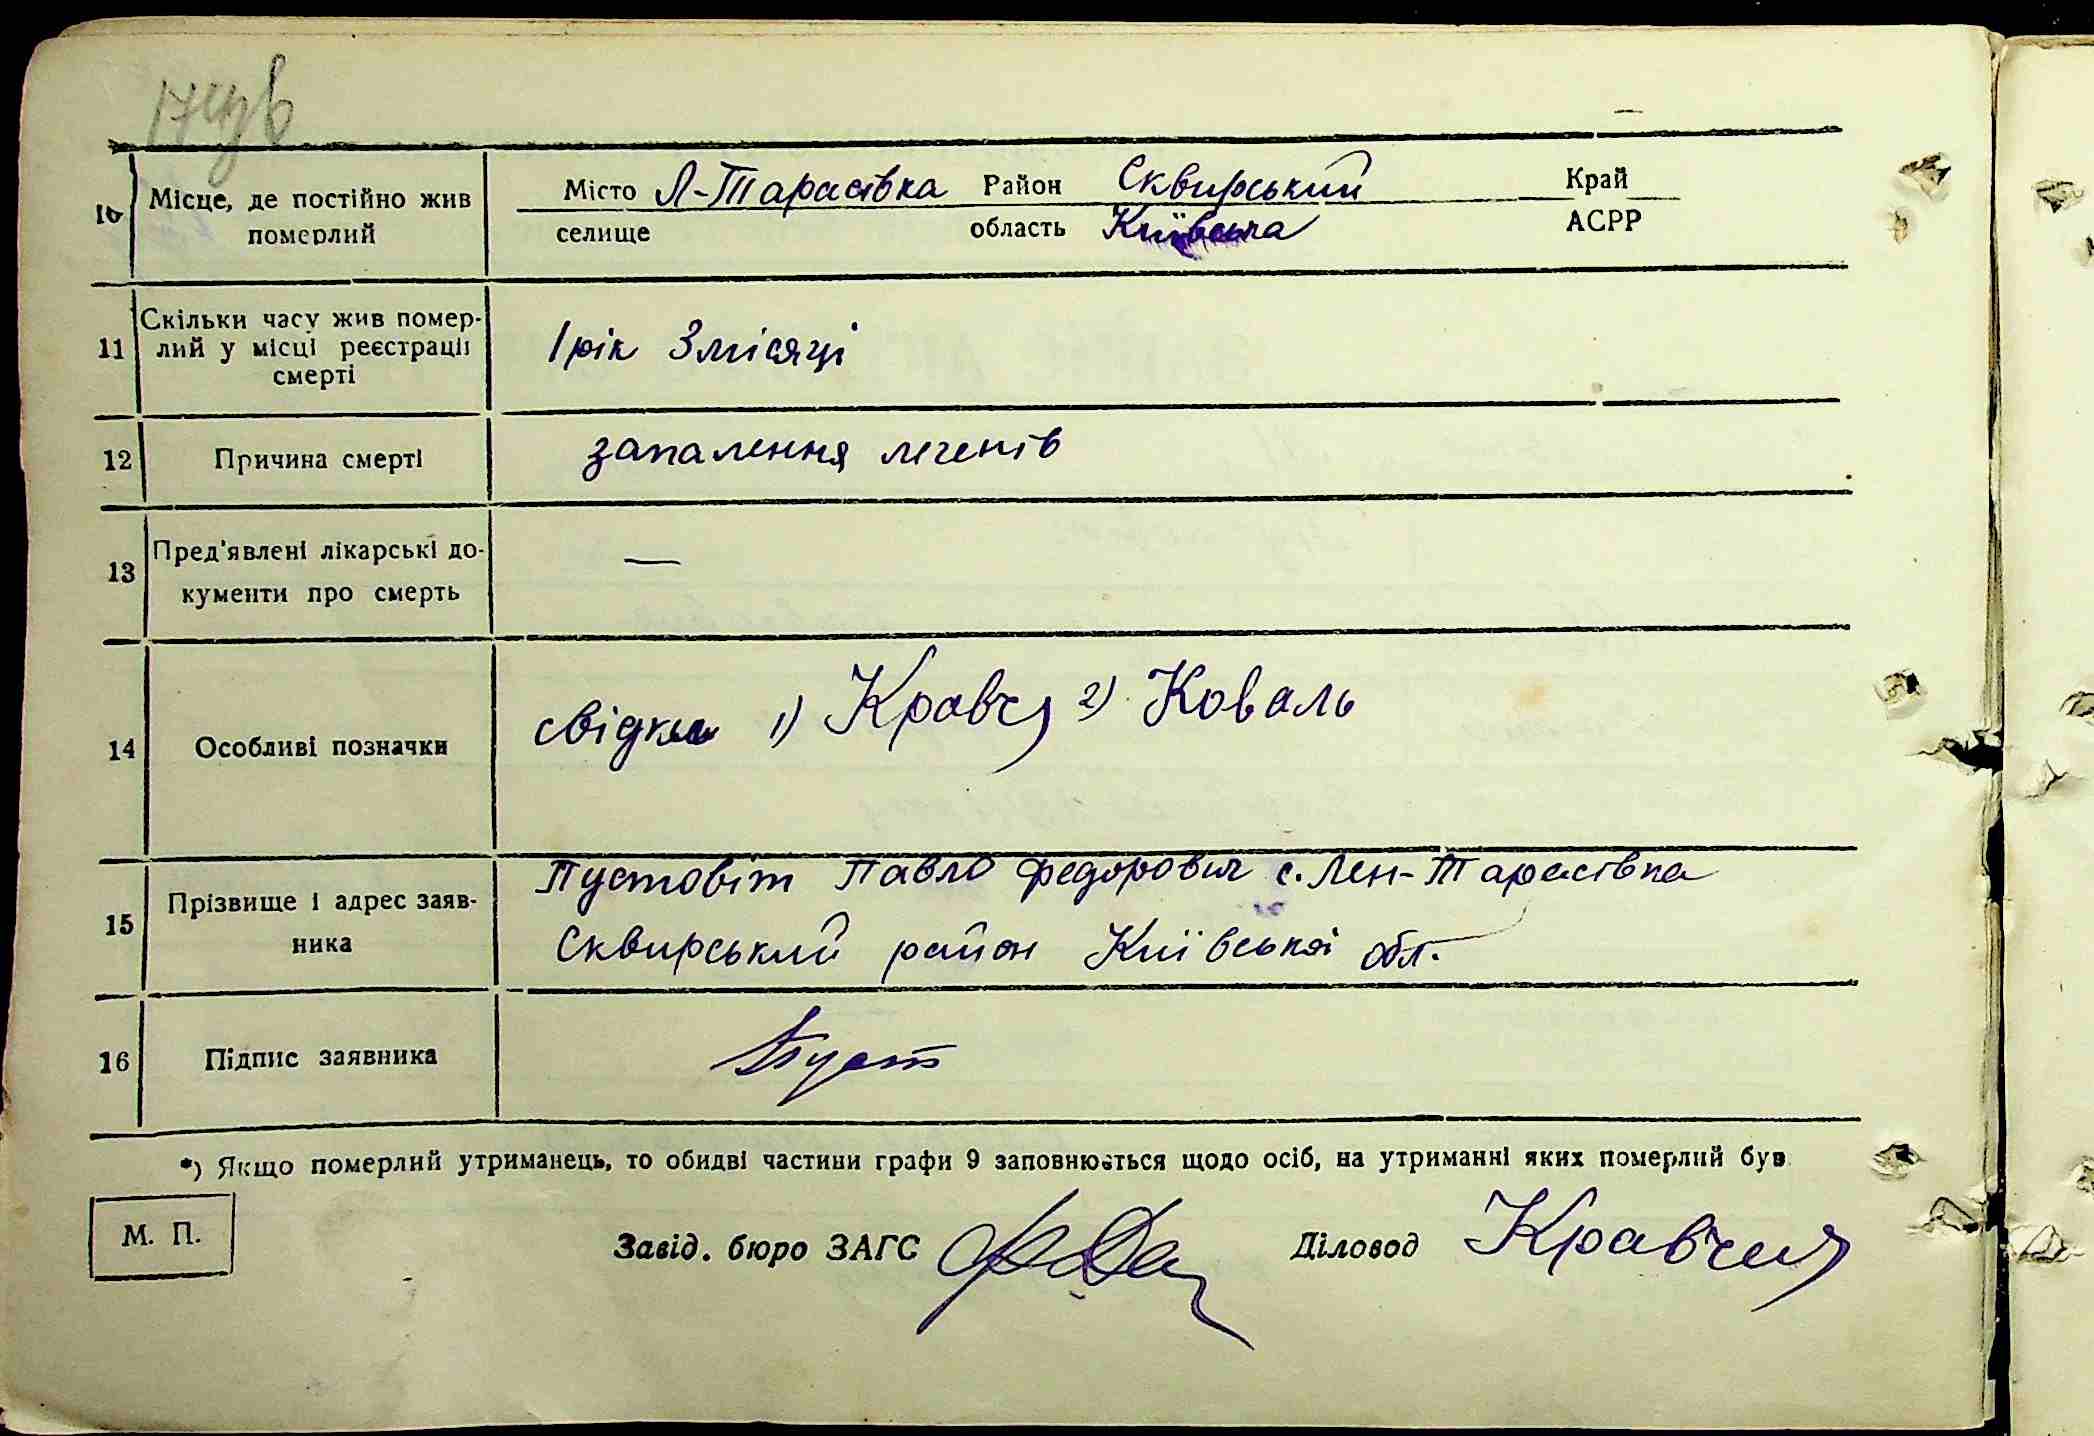 10 Місце, де постійно жив померлий
Місто Л-Тарасівка Район Сквирський Край
селище область Київська АСРР
11 Скільки часу жив помер-
лий у місці реєстрації
смерті
1 рік 3 місяці
12 Причина смерті запалення легенів
13 Пред'явлені лікарські до-
кументи про смерть
—
14 Особливі позначки свідки 1) 2) Коваль
15 Прізвище і адрес заяв-
ника
Пустовіт Павло Федорович с. Лен-Тарасівка
Сквирський район Київської обл.
16 Підпис заявника Пуст
*) Якщо померлий утриманець, то обидві частини графи 9 заповнюються щодо осіб, на утриманні яких померлий був
М. П.
Завід. бюро ЗАГС Діловод